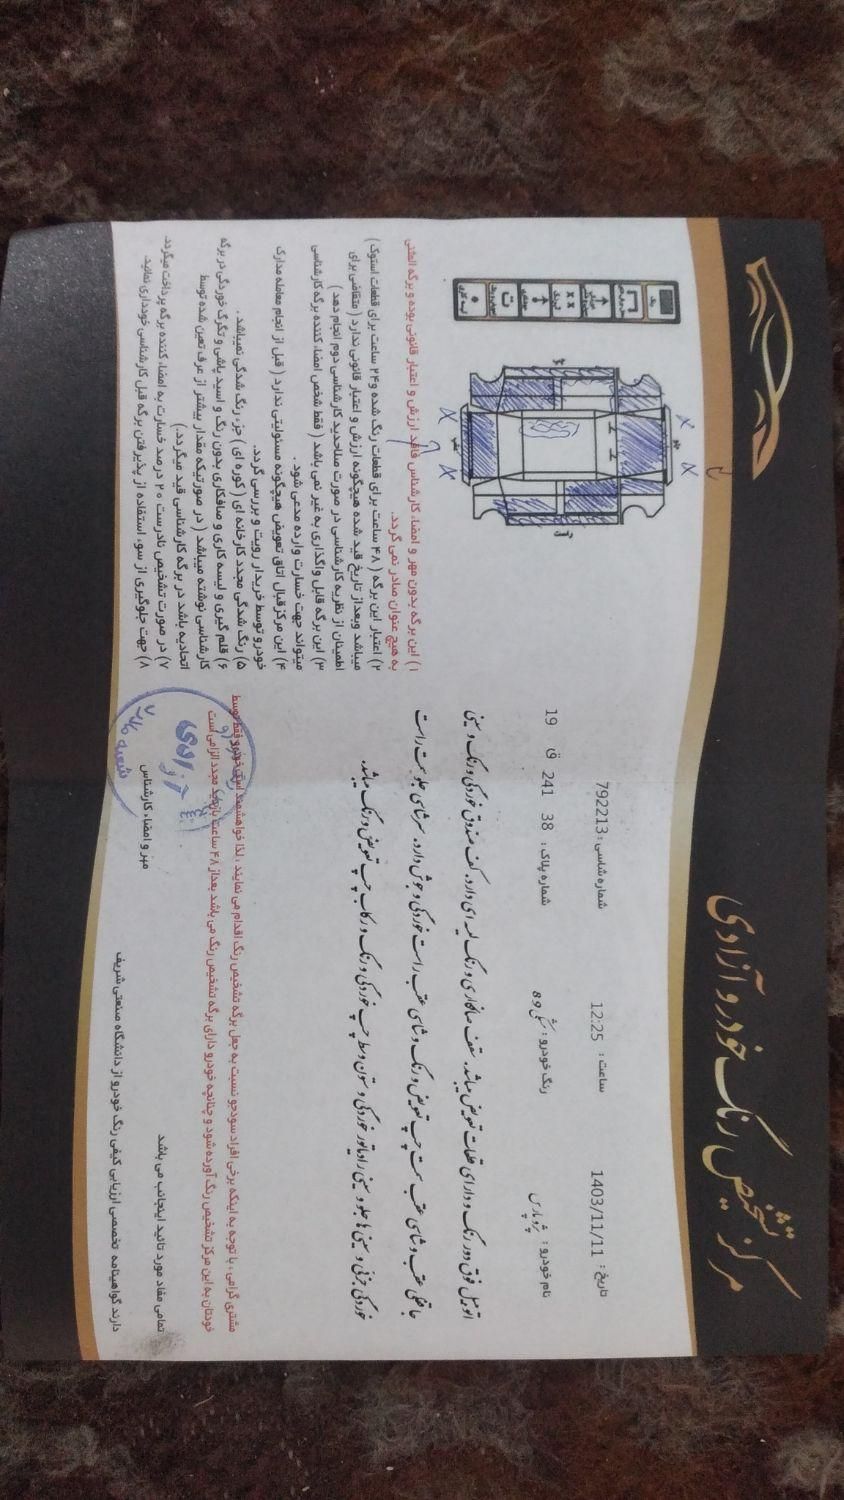 مرکز تشخیص رنگ خودرو آزادی
تاریخ : 1403/11/11
ساعت : 12:25
شماره شاسی : 792213
نام خودرو : پژو پارس
رنگ خودرو : مشکی 89
شماره پلاک : 38 241 ق 19
اتومبیل فوق دور رنگ و دارای قطعات تعویض میباشد. سقف صافکاری و رنگ لیسه ای دارد. کف صندوق خوردگی و رنگ و سینی
عقب و شاسی عقب سمت چپ تعویض و رنگ و شاسی عقب راست خوردگی و جوش دارد. سرشاسی جلو سمت راست
خوردگی جزئی و سینی جلو و سینی رادیاتور خوردگی و ستون وسط چپ خوردگی و رنگ و رکاب چپ تعویض و رنگ میباشد.
۱) این برگه بدون مهر و امضاء کارشناس فاقد ارزش و اعتبار قانونی بوده و برگه المثنی
به هیچ عنوان صادر نمی گردد.
۲) اعتبار این برگه ( ۴۸ ساعت برای قطعات رنگ شده و ۲۴ ساعت برای قطعات استوک )
میباشد وبعداز تاریخ قید شده هیچگونه ارزش و اعتبار قانونی ندارد ( متقاضی برای
اطمینان از نظریه کارشناسی در صورت صلاحدید کارشناسی دوم انجام دهد )
۳) این برگه قابل واگذاری به غیر نمی باشد ( فقط شخص امضاء کننده برگه کارشناسی
میتواند جهت خسارت وارده مدعی شود .
۴) این مرکز قبال اتاق تعویض هیچگونه مسئولیتی ندارد ( قبل از انجام معامله مدارک
خودرو توسط خریدار رویت و بررسی گردد.
۵) رنگ شدگی مجدد کارخانه ای ( کوره ای ) جزء رنگ شدگی نمیباشد .
۶) قلم گیری و لیسه کاری و صافکاری بدون رنگ و اسید پاشی و تگرگ خوردگی در برگه
کارشناسی نوشته میباشد ( در صورتیکه مقدار بیشتر از عرف تعین شده توسط
اتحادیه باشد در برگه کارشناسی قید میگردد.)
۷) در صورت تشخیص نادرست ۲۰ درصد خسارت به امضاء کننده برگه پرداخت میگردد.
۸) جهت جلوگیری از سوء استفاده از پذیرفتن برگه قبل کارشناسی خودداری نمائید.
مشتری گرامی ، با توجه به اینکه برخی افراد سودجو نسبت به جعل برگه تشخیص رنگ اقدام می نمایند ، لذا خواهشمند است خودرو فقط توسط
خودتان به این مرکز تشخیص رنگ آورده شود و چنانچه خودرو دارای برگه تشخیص رنگ می باشد بعداز ۴۸ ساعت بازدید مجدد الزامی است
تمامی مفاد مورد تائید اینجانب می باشد
مهر و امضاء کارشناس
آزادی
دارنده گواهینامه تخصصی ارزیابی کیفی رنگ خودرو از دانشگاه صنعتی شریف